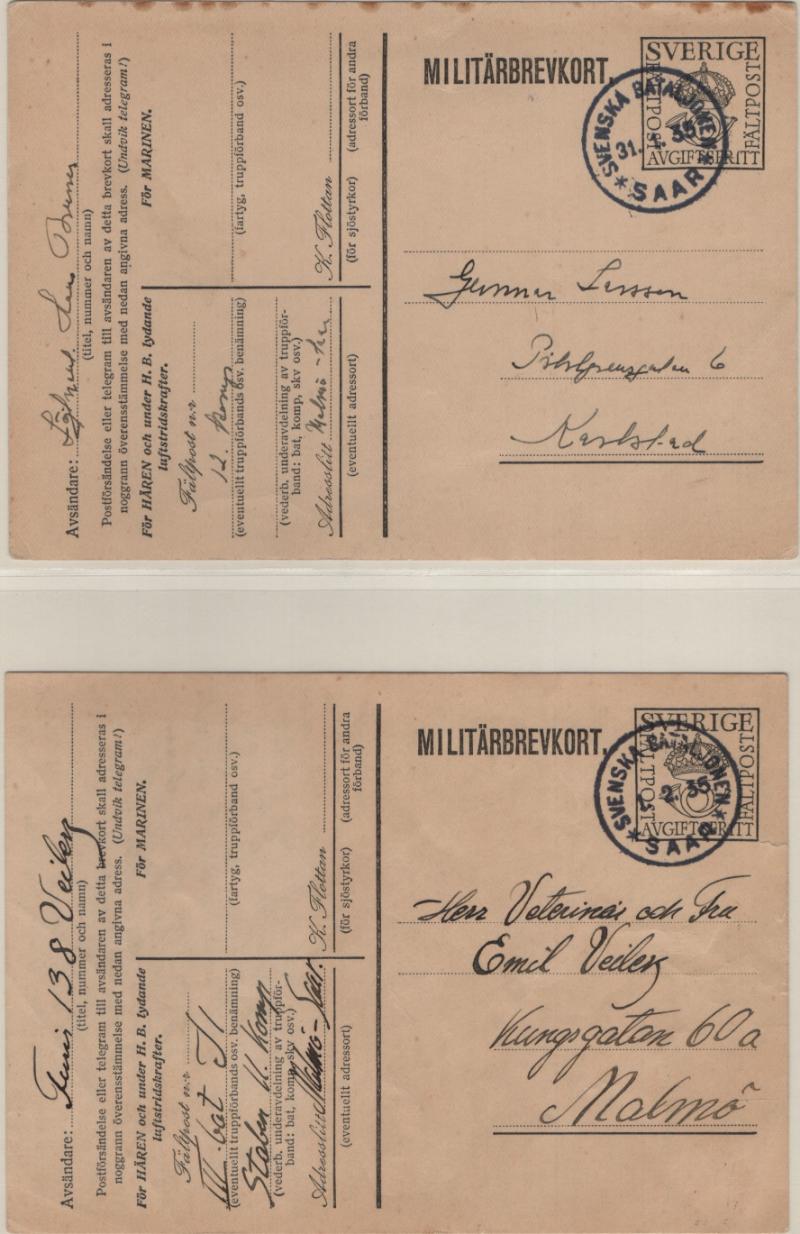 MILITÄRBREVKORT.
SVERIGE
FÄLTPOST
FÄLTPOST
AVGIFTSFRITT
SVENSKA BATALJONEN
31. 35
* SAAR *
Gunnar Larsson
6
Karlstad
Avsändare:
(titel, nummer och namn)
Postförsändelse eller telegram till avsändaren av detta brevkort skall adresseras i
noggrann överensstämmelse med nedan angivna adress. (Undvik telegram!)
För HÄREN och under H. B. lydande
luftstridskrafter.
Fältpost n:r
12. Komp
(eventuellt truppförbands osv. benämning)
(vederb. underavdelning av truppför-
band: bat, komp, skv osv.)
Adresslitt Malmö -
(eventuellt adressort)
För MARINEN.
(fartyg, truppförband osv.)
K. Flottan
(för sjöstyrkor) (adressort för andra
förband)
MILITÄRBREVKORT.
SVERIGE
FÄLTPOST
FÄLTPOST
AVGIFTSFRITT
SVENSKA BATALJONEN
5 2. 35
* SAAR *
Herr Veterinär och Fru
Emil Veilerz
Kungsgatan 60a
Malmö
Avsändare: 138 Veilerz
(titel, nummer och namn)
Postförsändelse eller telegram till avsändaren av detta brevkort skall adresseras i
noggrann överensstämmelse med nedan angivna adress. (Undvik telegram!)
För HÄREN och under H. B. lydande
luftstridskrafter.
Fältpost n:r
III. bat
(eventuellt truppförbands osv. benämning)
Staben Komp
(vederb. underavdelning av truppför-
band: bat, komp, skv osv.)
Adresslitt Malmö - Saar.
(eventuellt adressort)
För MARINEN.
(fartyg, truppförband osv.)
K. Flottan
(för sjöstyrkor) (adressort för andra
förband)